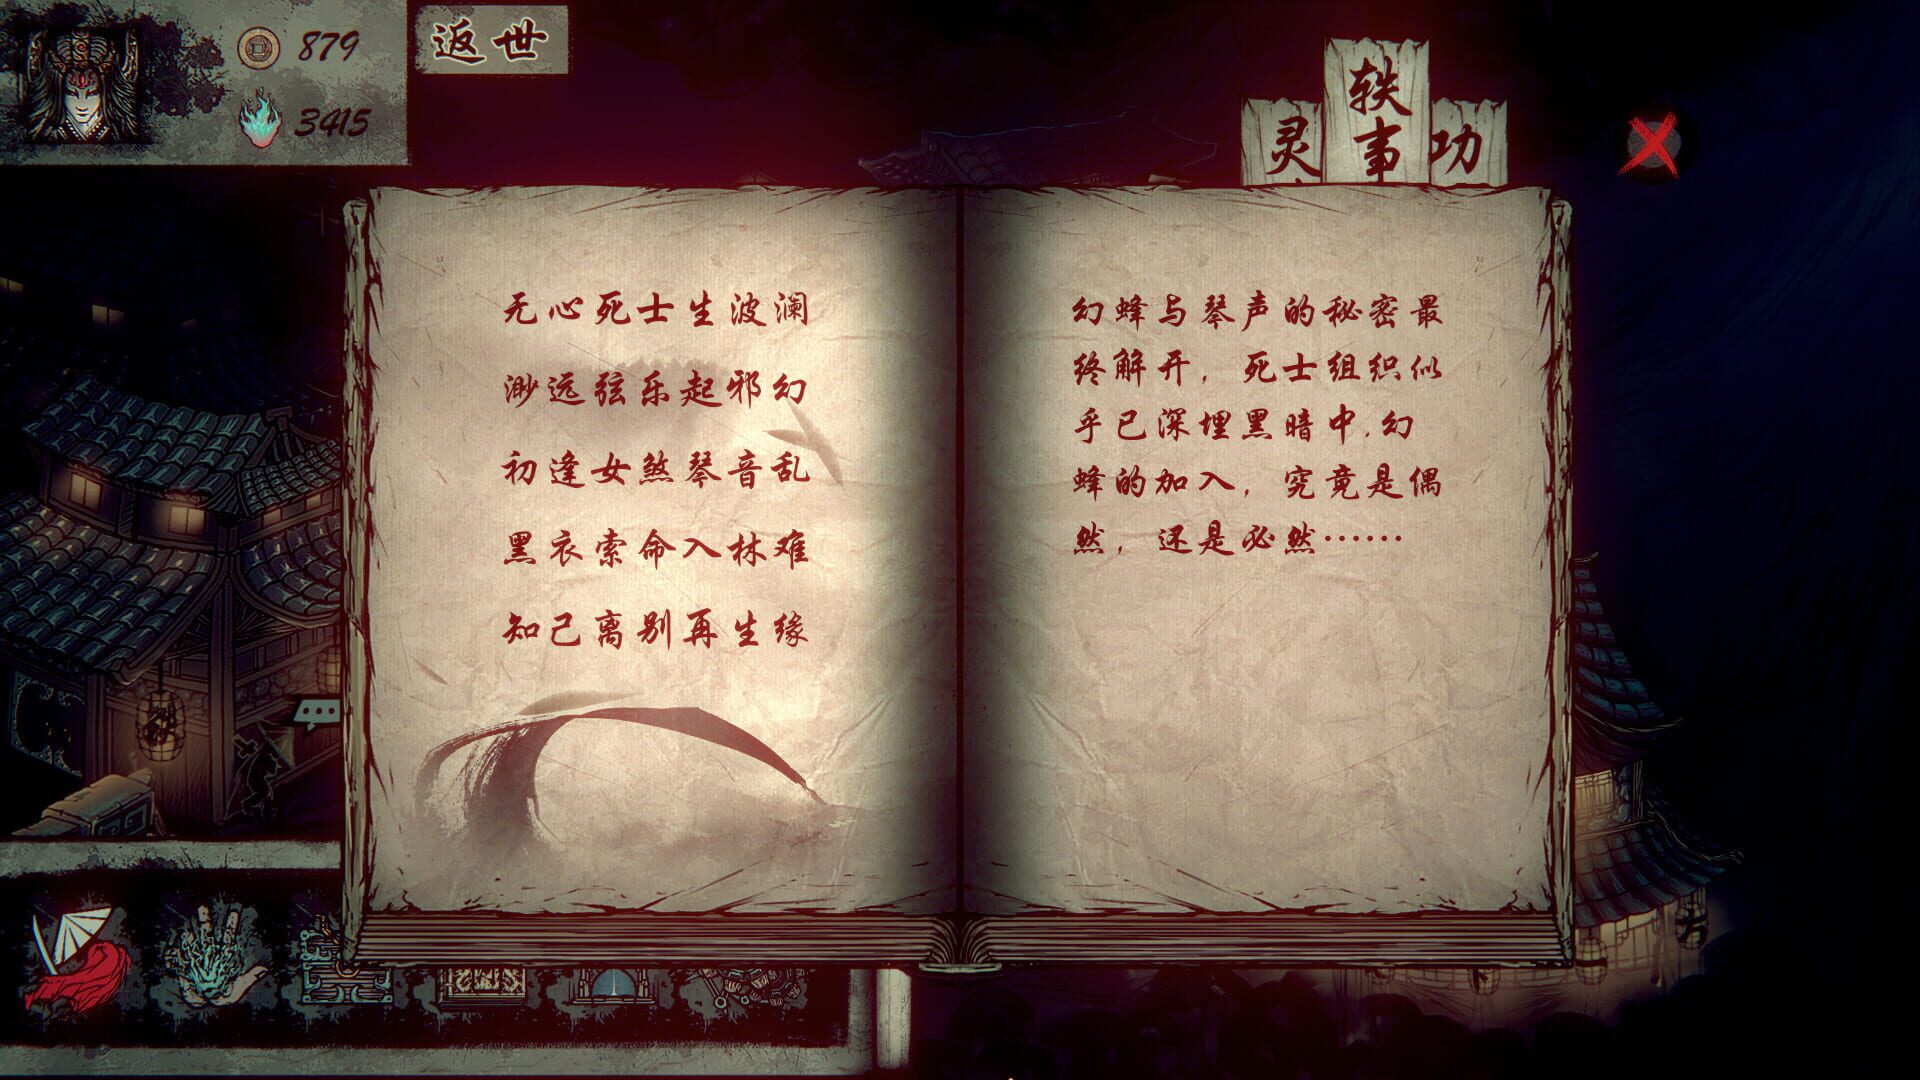 879
返世
3415
灵
轶事
功
无心死士生波澜
渺远弦乐起邪幻
初逢女煞琴音乱
黑衣索命入林难
知己离别再生缘
幻蜂与琴声的秘密最
终解开，死士组织似
乎已深埋黑暗中.幻
蜂的加入，究竟是偶
然，还是必然……